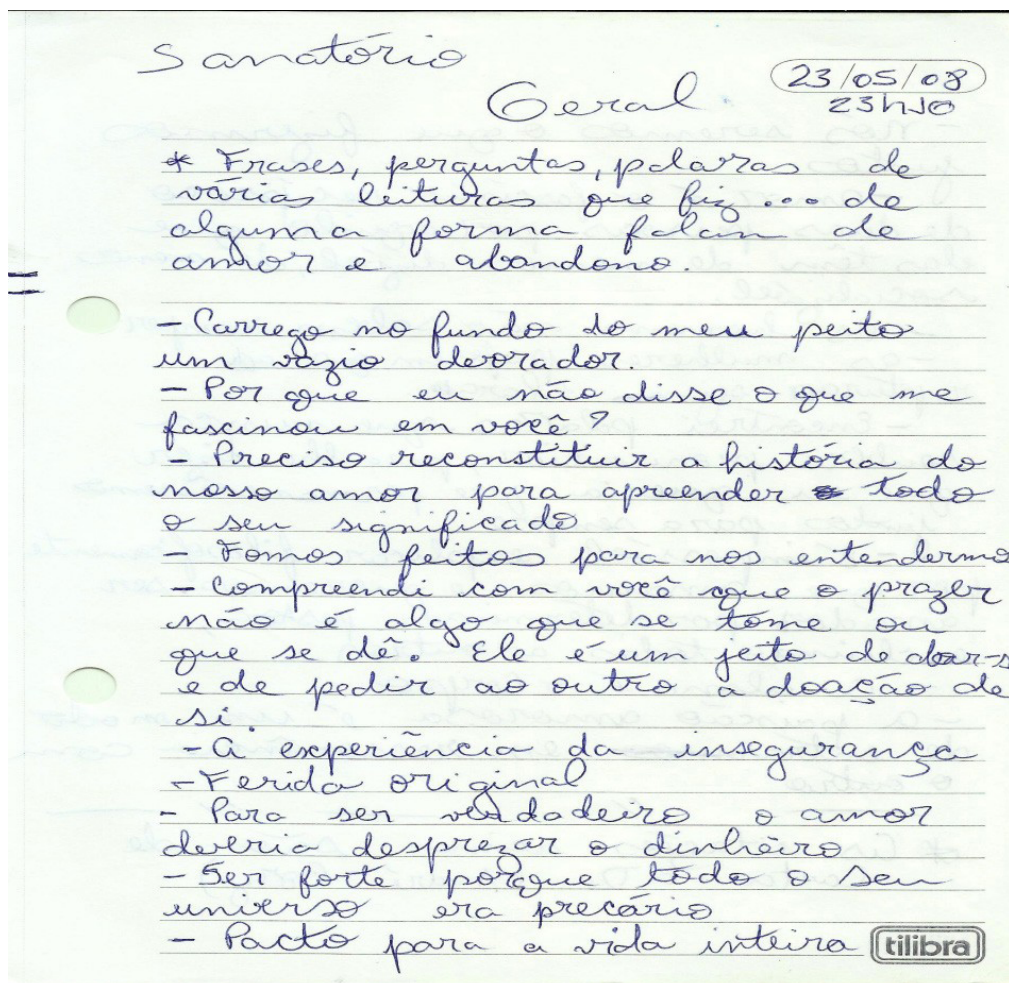 Sanatório
Geral
23/05/08
23h10
* Frases, perguntas, palavras de
várias leituras que fiz... de
alguma forma falam de
amor e abandono.
- Carrego no fundo do meu peito
um vazio devorador.
- Por que eu não disse o que me
fascinou em você?
- Preciso reconstituir a história do
nosso amor para apreender todo
o seu significado
- Fomos feitos para nos entendermo
- Compreendi com você que o prazer
não é algo que se tome ou
que se dê. Ele é um jeito de dar-s
e de pedir ao outro a doação de
si.
- A experiência da insegurança
- Ferida original
- Para ser verdadeiro o amor
deveria desprezar o dinheiro
- Ser forte porque todo o seu
universo era precário
- Pacto para a vida inteira
tilibra